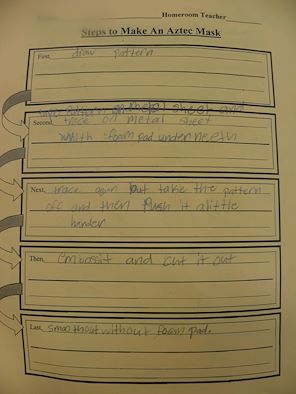 Homeroom Teacher
Steps to Make An Aztec Mask
First, draw pattern
pattern sheet and
Second, trace on metal sheet
with foam pad underneeth
Next, trace again but take the pattern
off and then Push it alittle
harder
Then, embossit and cut it out
Last, smoothout without foam pad.